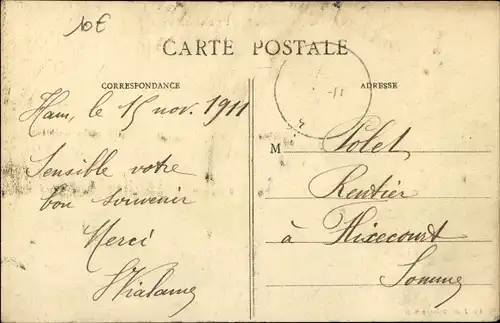 10€
CARTE POSTALE
CORRESPONDANCE
ADRESSE
Ham, le 15 nov. 1911
Sensible votre
bon souvenir
Merci
M Polet
Rentier
à
Somme